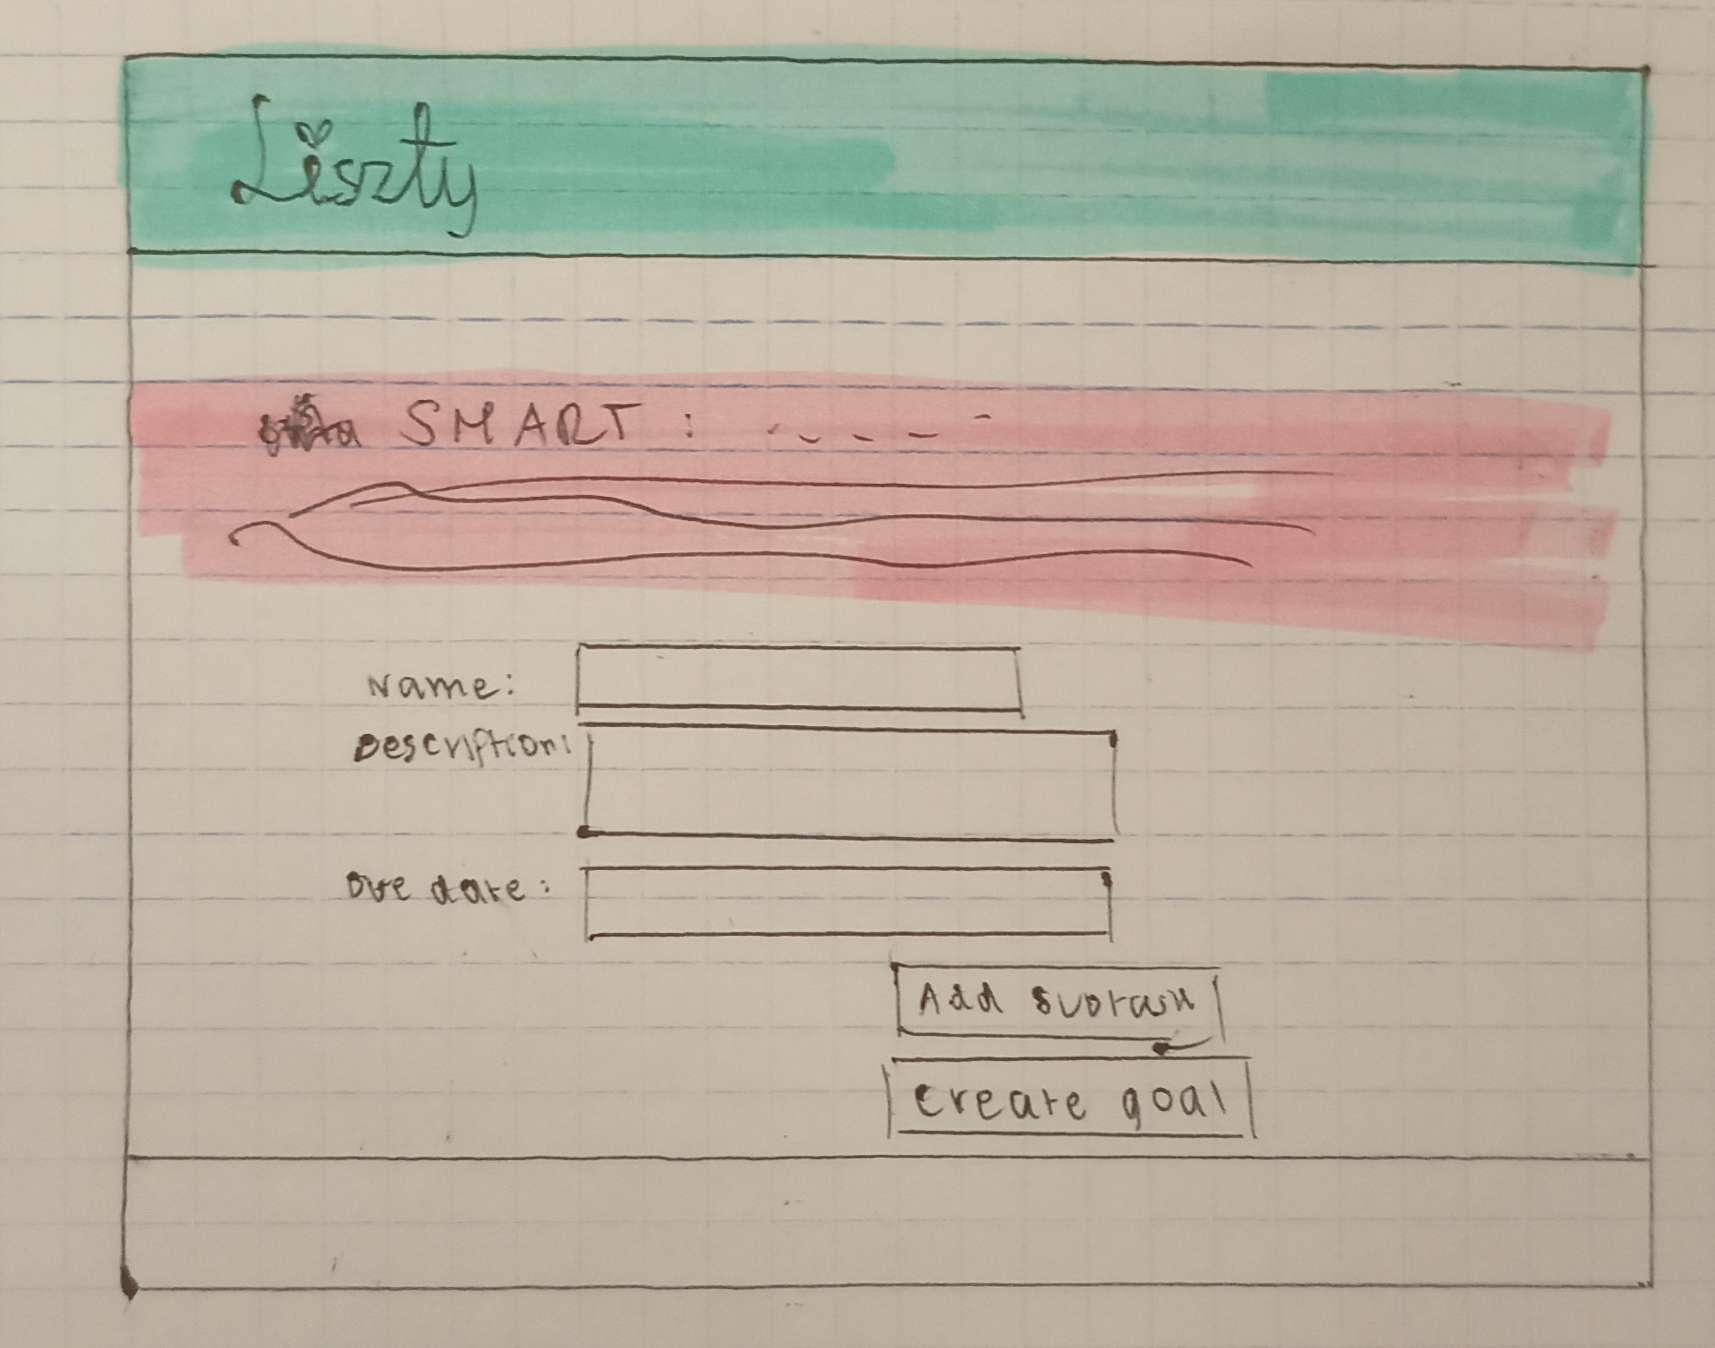 Liszty
SMART : - - - - -
Name:
Description:
Due date:
Add subtask
Create goal